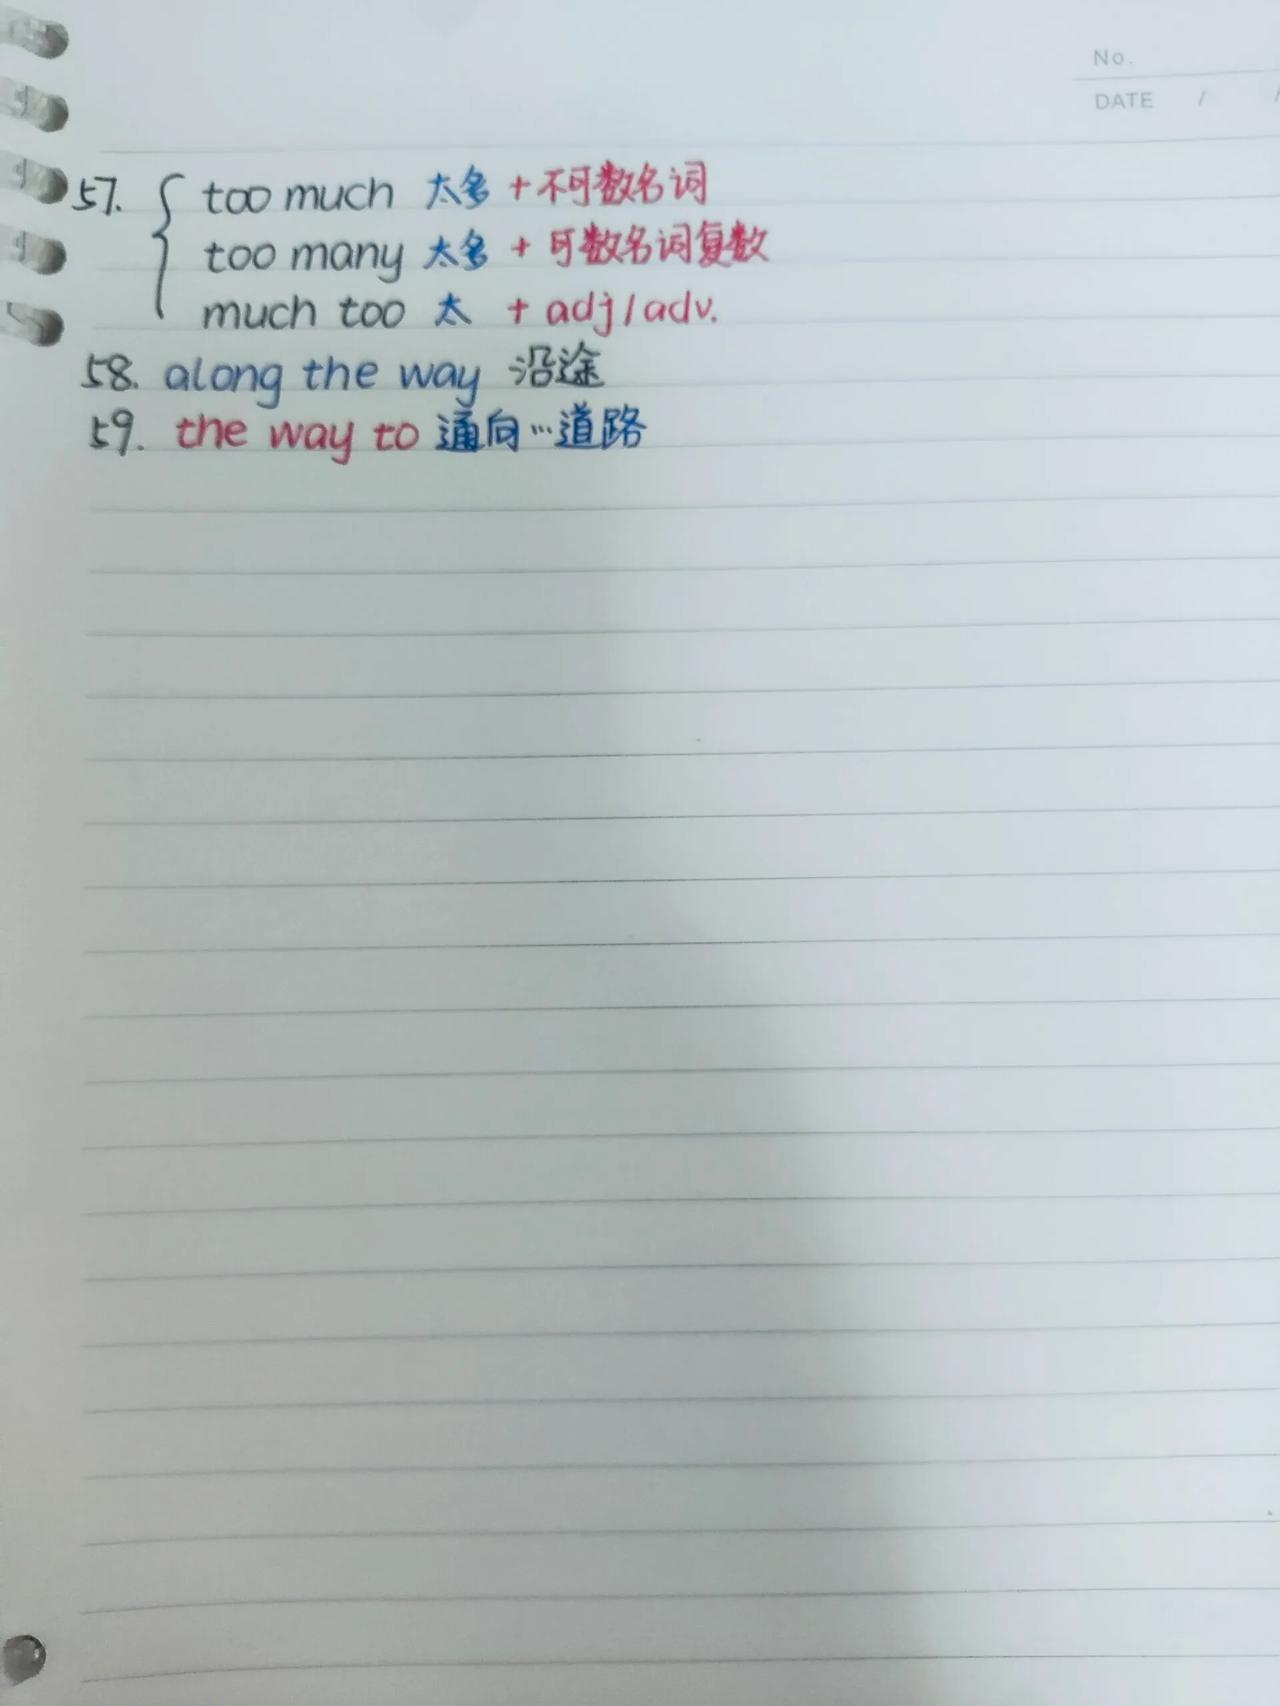 No.
DATE / /
57. { too much 太多 + 不可数名词
too many 太多 + 可数名词复数
much too 太 + adj/adv.
58. along the way 沿途
59. the way to 通向…道路